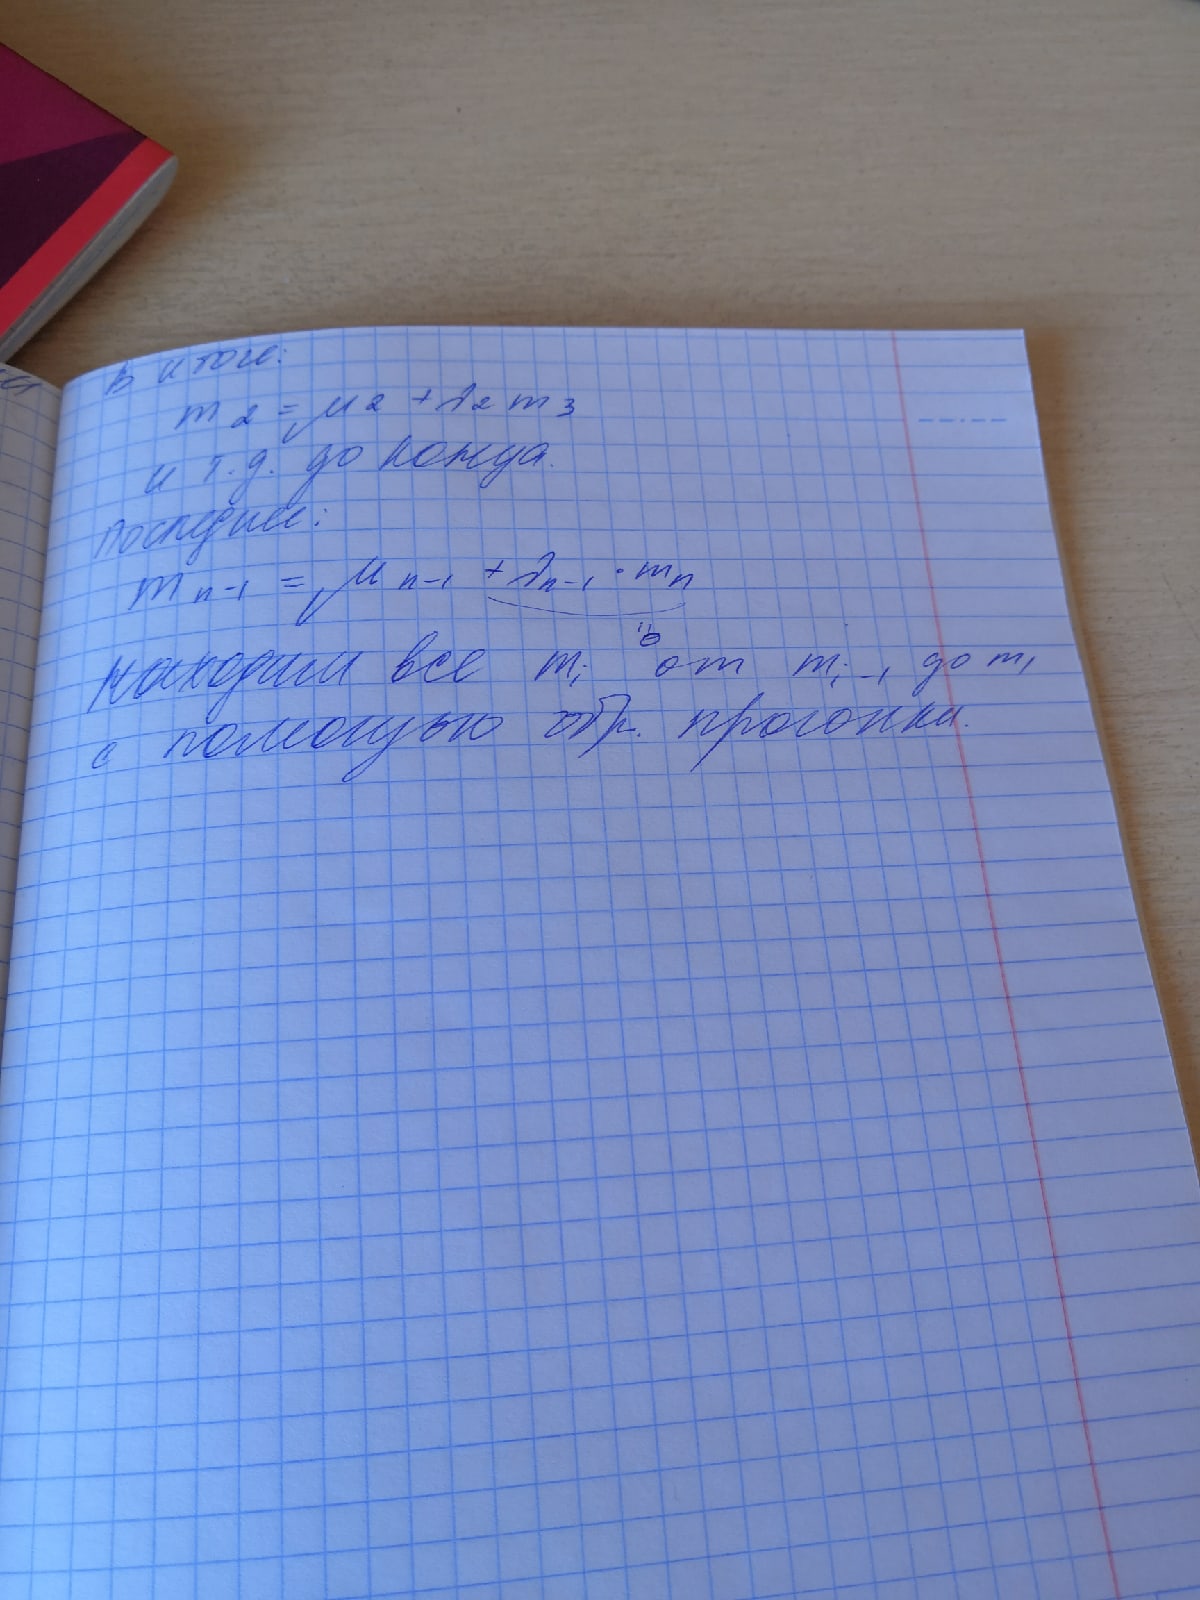 В итоге:
m₂ = μ₂ + λ₂ m₃
и т.д. до конца.
Последнее:
mₙ₋₁ = μₙ₋₁ + λₙ₋₁ · mₙ
"0
находим все mᵢ от mᵢ₋₁ до m₁
с помощью обр. прогонки.